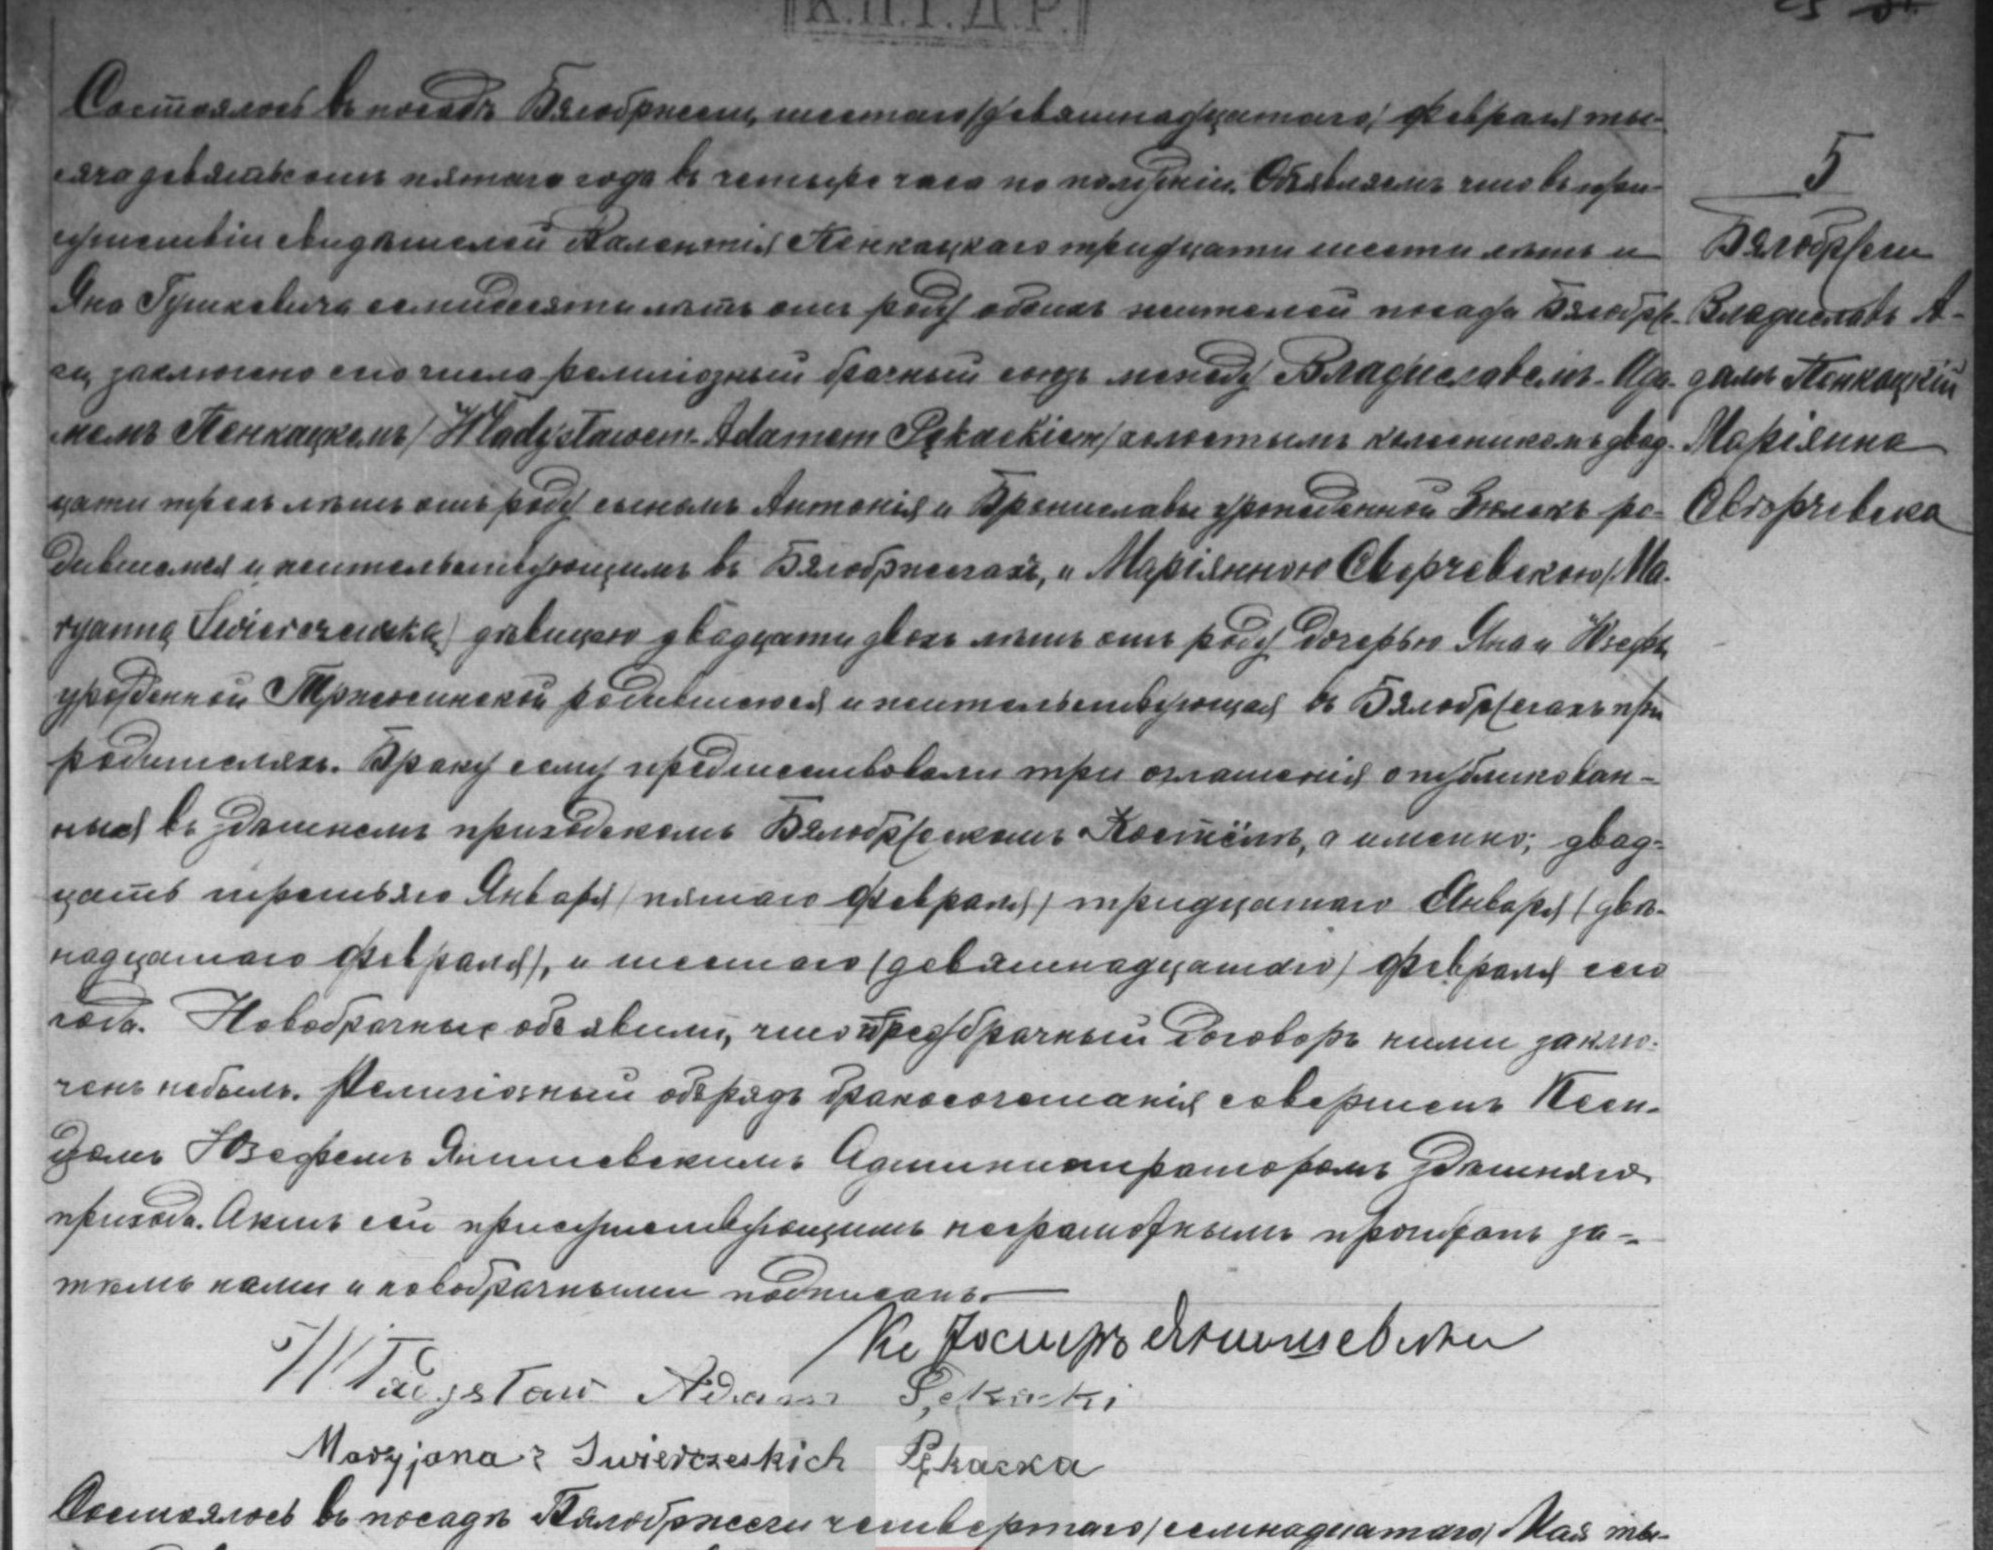 К.П.Г.Д.Р.
Состоялось въ посадѣ Бялобржеги, шестаго/девятнадцатаго/ Февраля ты-
сяча девятьсотъ пятаго года въ четыре часа по полудни. Объявляемъ что въ при-
сутствіи свидѣтелей Валентія Пенкацкаго тридцати шести лѣтъ и
Яна Гутковича семидесяти лѣтъ отъ роду обоихъ жителей посада Бялобрже-
ги, заключено сего числа религіозный брачный союзъ между Владиславомъ-Ада-
момъ Пенкацкомъ/Władysławem-Adamem Pękackiem/холостымъ колесникомъ двад-
цати трехъ лѣтъ отъ роду сыномъ Антонія и Брониславы урожденной ро-
дившемся и жительствующимъ въ Бялобржегахъ, и Маріянною Сверчевскою/Ma-
ryanną Świerczewską/ дѣвицею двадцати двохъ лѣтъ отъ роду дочерью Яна и Юзефы
урожденной родившеюся и жительствующая въ Бялобржегахъ при
родителяхъ. Браку сему предшествовали три оглашенія опубликован-
ныя въ здѣшнемъ приходскомъ Бялобржескомъ Костёлѣ, а именно; двад-
цать третьяго Января/пятаго Февраля/ тридцатаго Января (двѣ-
надцатаго Февраля), и шестаго (девятнадцатаго) Февраля сего
года. Новобрачные объявили, что предбрачный договоръ ними заклю-
ченъ небылъ. Религіозный обрядъ бракосочетанія совершенъ Ксен-
дзомъ Юзефомъ Администраторомъ здѣшняго
прихода. Актъ сей присутствующимъ неграмотнымъ прочитанъ за-
тѣмъ нами и новобрачными подписанъ.
Кс
Władysław Adam Pękacki
Maryjana z Swierczeskich Pękacka
Состоялось въ посадѣ Бялобржеги четвертаго/семнадцатаго/ Мая ты-
5
Бялобржеги
Владиславъ А-
дамъ Пенкацкій
Маріянна
Сверчевска